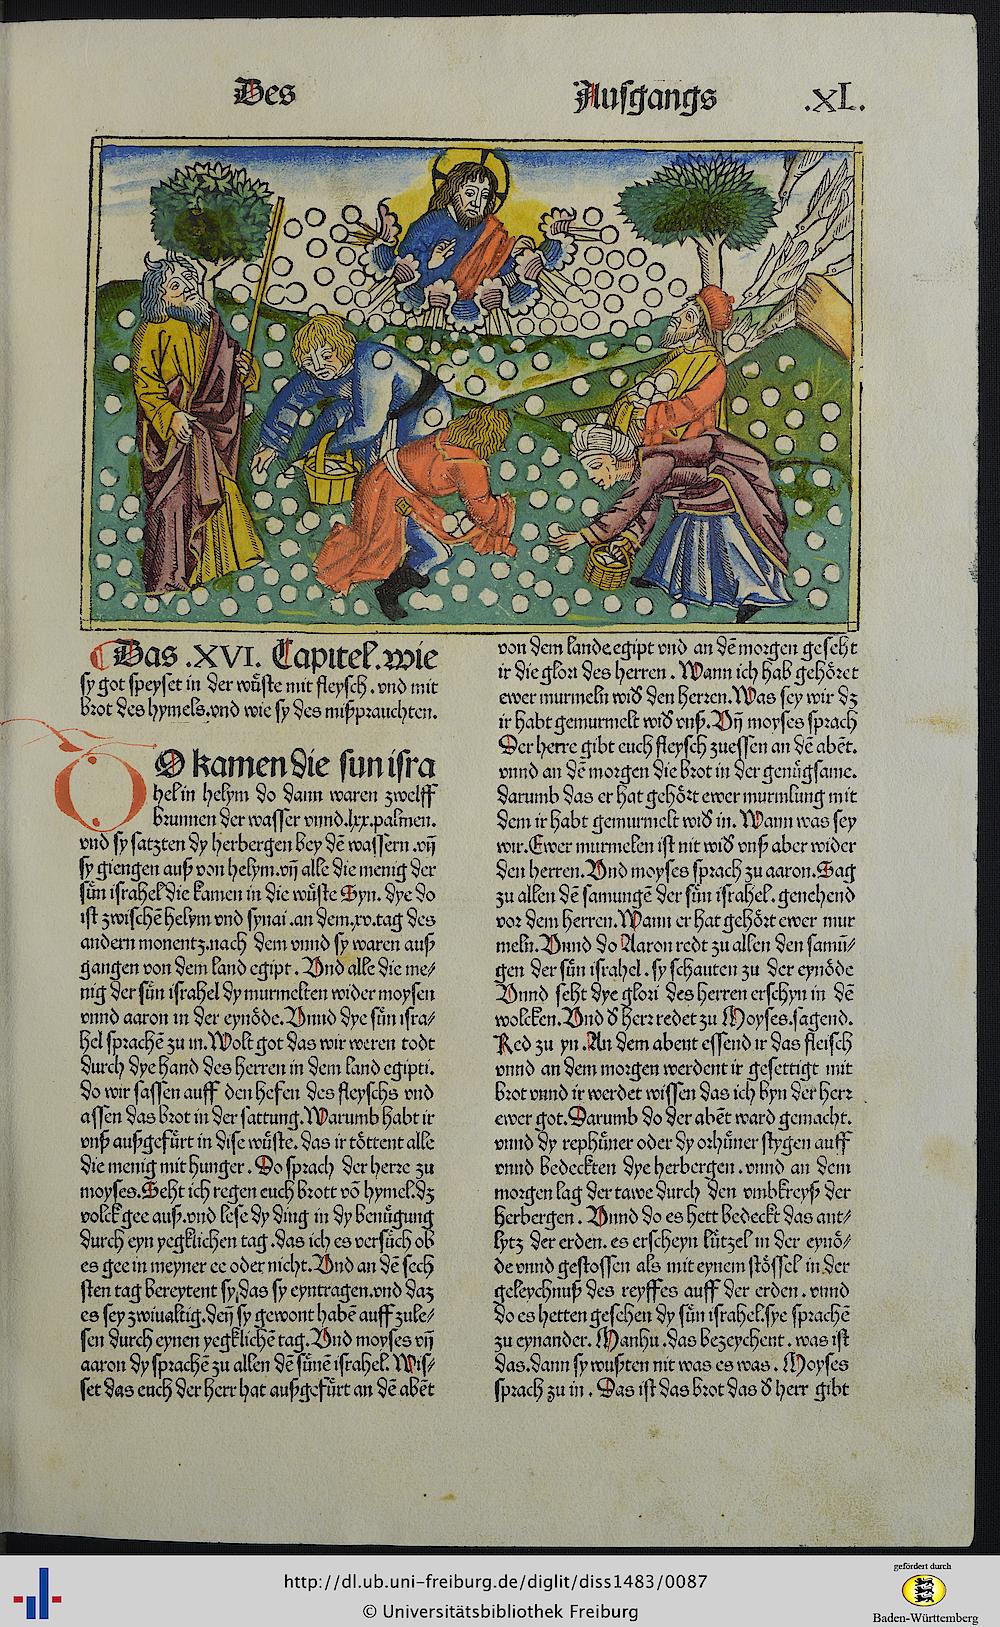 Des
Ausgangs
.XL.
Das .XVI. Capitel. wie
sy got speyset in der wüste mit fleysch. vnd mit
brot des hymels. vnd wie sy des mißprauchten.
DO kamen die sun isra
hel in helym do dann waren zwelff
brunnen der wasser vnnd .lxx. palmen.
vnd sy satzten dy herbergen bey dē wassern. vñ
sy giengen auß von helym. vñ alle die menig der
sün israhel die kamen in die wüste Syn. dye do
ist zwischē helym vnd synai. an dem .xv. tag des
andern monentz. nach dem vnnd sy waren auß
gangen von dem land egipt. Vnd alle die me⸗
nig der sün israhel dy murmelten wider moysen
vnnd aaron in der eynöde. Vnnd dye sün isra⸗
hel sprachē zu in. Wolt got das wir weren todt
durch dye hand des herren in dem land egipti.
do wir sassen auff den hefen des fleyschs vnd
assen das brot in der sattung. Warumb habt ir
vnß außgefürt in dise wüste. das ir töttent alle
die menig mit hunger. Do sprach der herre zu
moyses. Seht ich regen euch brott vō hymel. dz
volck gee auß. vnd lese dy ding in dy benügung
durch eyn yegklichen tag. das ich es versüch ob
es gee in meyner ee oder nicht. Vnd an dē sech
sten tag bereytent sy. das sy eyntragen. vnd daz
es sey zwiualtig. deñ sy gewont habē auff zule⸗
sen durch eynen yegklichē tag. Vnd moyses vñ
aaron dy sprachē zu allen dē sünē israhel. Wis⸗
set das euch der herr hat außgefürt an dē abēt
von dem lande egipt vnd an dē morgen geseht
ir die glori des herren. Wann ich hab gehöret
ewer murmeln wid̕ den herren. Was sey wir dz
ir habt gemurmelt wid̕ vnß. Vñ moyses sprach
Der herre gibt euch fleysch zuessen an dē abēt.
vnnd an dē morgen die brot in der genügsame.
darumb das er hat gehört ewer murmlung mit
dem ir habt gemurmelt wid̕ in. Wann was sey
wir. Ewer murmelen ist nit wid̕ vnß aber wider
den herren. Vnd moyses sprach zu aaron. Sag
zu allen dē samungē der sün israhel. genehend
vor dem herren. Wann er hat gehört ewer mur
meln. Vnnd do Aaron redt zu allen den samū⸗
gen der sün israhel. sy schauten zu der eynöde
Vnnd seht dye glori des herren erschyn in dē
wolcken. Vnd d̕ herr redet zu Moyses. sagend.
Red zu yn. An dem abent essend ir das fleisch
vnnd an dem morgen werdent ir gesettigt mit
brot vnnd ir werdet wissen das ich byn der herr
ewer got. Darumb do der abēt ward gemacht.
vnnd dy rephüner oder dy orhüner stygen auff
vnnd bedeckten dye herbergen. vnnd an dem
morgen lag der tawe durch den vmbkreyß der
herbergen. Vnnd do es hett bedeckt das ant⸗
lytz der erden. es erscheyn lützel in der eynö⸗
de vnnd gestossen als mit eynem stössel in der
geleychnuß des reyffes auff der erden. vnnd
do es hetten gesehen dy sün israhel. sye sprachē
zu eynander. Manhu. das bezeychent. was ist
das. dann sy wußten nit was es was. Moyses
sprach zu in. Das ist das brot das d̕ herr gibt
http://dl.ub.uni-freiburg.de/diglit/diss1483/0087
© Universitätsbibliothek Freiburg
gefördert durch
Baden-Württemberg